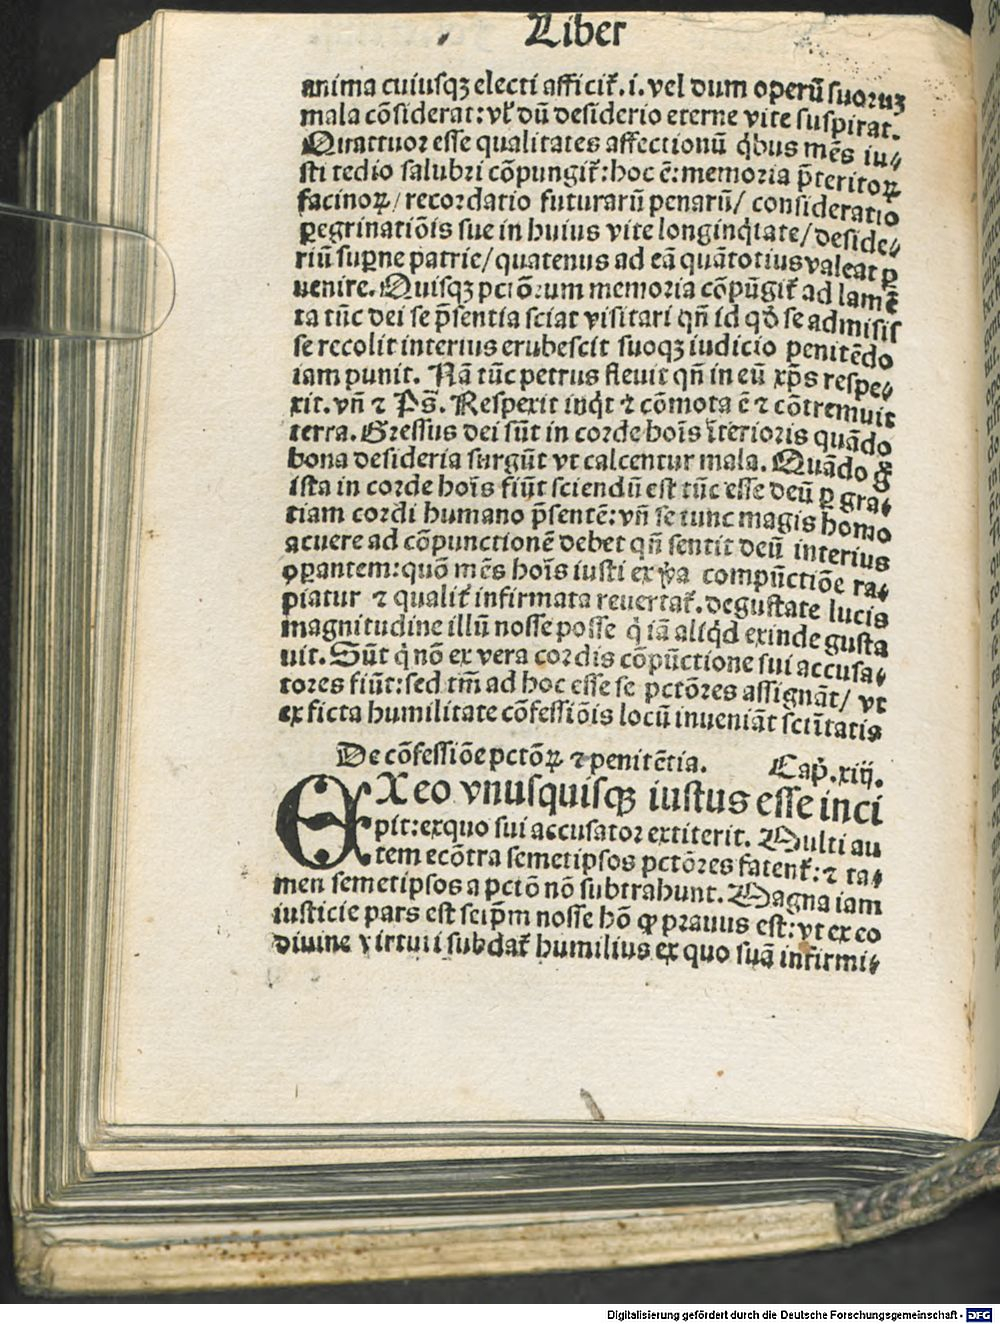 Liber
anima cuiusqꝫ electi afficit᷑. i. vel dum operū suoruꝫ
mala cōsiderat: vl̓ dū desiderio eterne vite suspirat.
Quattuor esse qualitates affectionū q̇bus mēs iu⸗
sti tedio salubri cōpungit᷑: hoc ē: memoria p̄teritoꝝ
facinoꝝ/ recordatio futurarū penarū/ consideratio
ꝑegrinatiōis sue in huius vite longinq̇tate/ deside⸗
riū suꝑne patrie/ quatenus ad eā quātotius valeat ꝑ
uenire. Quisqꝫ pctōrum memoria cōpūgit᷑ ad lamē
ta tūc dei se p̄sentia sciat visitari qn̄ id qd̓ se admisis
se recolit interius erubescit suoqꝫ iudicio penitēdo
iam punit. Nā tūc petrus fleuit qn̄ in eū xp̄s respe⸗
xit. vn̄ ⁊ Ps̄. Respexit inq̇t ⁊ cōmota ē ⁊ cōtremuit
terra. Gressus dei sūt in corde hoīs īterioris quādo
bona desideria surgūt vt calcentur mala. Quādo gͦ
ista in corde hoīs fiūt sciendū est tūc esse deū ꝑ gra⸗
tiam cordi humano p̄sentē: vn̄ se tunc magis homo
acuere ad cōpunctionē debet qn̄ sentit deū interius
oꝑantem: quō mēs hoīs iusti ex v̓a compūctiōe ra⸗
piatur ⁊ qualit᷑ infirmata reuertat᷑. degustate lucis
magnitudine illū nosse posse q̇ iā aliq̇d exinde gusta
uit. Sūt q̇ nō ex vera cordis cōpūctione sui accusa⸗
tores fiūt: sed tm̄ ad hoc esse se pctōres assignāt/ vt
ex ficta humilitate cōfessiōis locū inueniāt scīitatis
De cōfessiōe pctōꝝ ⁊ penitētia. Cap̓. xiij.
EX eo vnusquisqꝫ iustus esse inci
pit: exquo sui accusator extiterit. Multi au
tem ecōtra semetipsos pctōres fatent᷑: ⁊ ta⸗
men semetipsos a pctō nō subtrahunt. Magna iam
iusticie pars est seip̄m nosse hō ꝙ prauus est: vt ex eo
diuine virtuti subdat᷑ humilius ex quo suā infirmi⸗
Digitalisierung gefördert durch die Deutsche Forschungsgemeinschaft - DFG